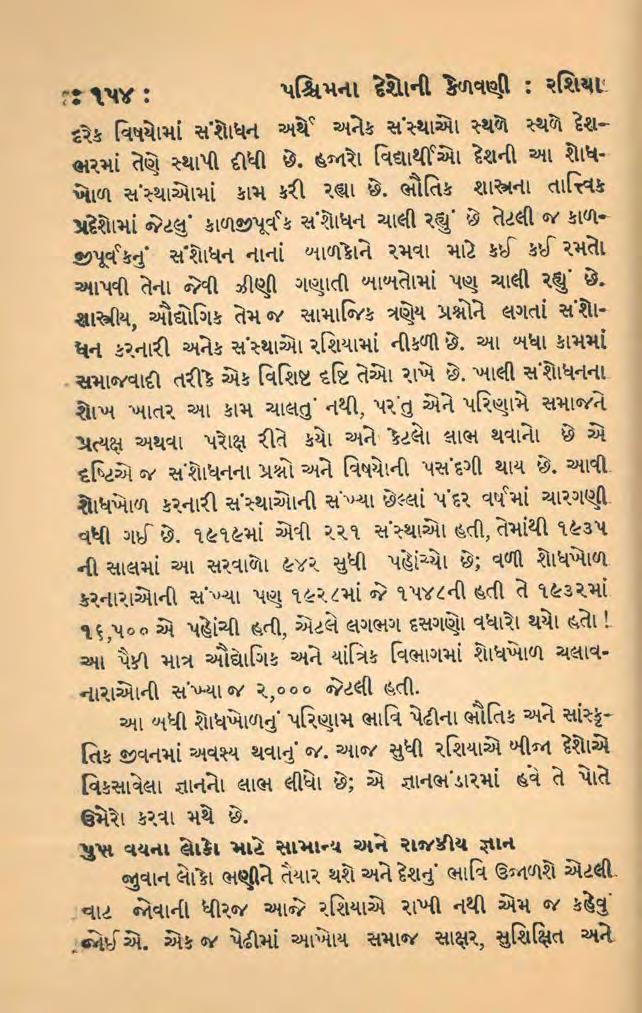 : ૧૫૪ : પશ્ચિમના દેશોની કેળવણી : રશિયા
દરેક વિષયોમાં સંશોધન અર્થે અનેક સંસ્થાઓ સ્થળે સ્થળે દેશ-
ભરમાં તેણે સ્થાપી દીધી છે. હજારો વિદ્યાર્થીઓ દેશની આ શોધ-
ખોળ સંસ્થાઓમાં કામ કરી રહ્યા છે. ભૌતિક શાસ્ત્રના તાત્ત્વિક
પ્રદેશોમાં જેટલું કાળજીપૂર્વક સંશોધન ચાલી રહ્યું છે તેટલી જ કાળ-
જીપૂર્વકનું સંશોધન નાનાં બાળકોને રમવા માટે કઈ કઈ રમતો
આપવી તેના જેવી ઝીણી ગણાતી બાબતોમાં પણ ચાલી રહ્યું છે.
શાસ્ત્રીય, ઔદ્યોગિક તેમ જ સામાજિક ત્રણેય પ્રશ્નોને લગતાં સંશો-
ધન કરનારી અનેક સંસ્થાઓ રશિયામાં નીકળી છે. આ બધા કામમાં
સમાજવાદી તરીકે એક વિશિષ્ટ દૃષ્ટિ તેઓ રાખે છે. ખાલી સંશોધનના
શોખ ખાતર આ કામ ચાલતું નથી, પરંતુ એને પરિણામે સમાજને
પ્રત્યક્ષ અથવા પરોક્ષ રીતે કયો અને કેટલો લાભ થવાનો છે એ
દૃષ્ટિએ જ સંશોધનના પ્રશ્નો અને વિષયોની પસંદગી થાય છે. આવી
શોધખોળ કરનારી સંસ્થાઓની સંખ્યા છેલ્લાં પંદર વર્ષમાં ચારગણી
વધી ગઈ છે. ૧૯૧૯માં એવી ૨૨૧ સંસ્થાઓ હતી, તેમાંથી ૧૯૩૫
ની સાલમાં આ સરવાળો ૯૪૨ સુધી પહોંચ્યો છે; વળી શોધખોળ
કરનારાઓની સંખ્યા પણ ૧૯૨૮માં જે ૧૫૪૮ની હતી તે ૧૯૩૨માં
૧૬,૫૦૦ એ પહોંચી હતી, એટલે લગભગ દસગણો વધારો થયો હતો!
આ પૈકી માત્ર ઔદ્યોગિક અને યાંત્રિક વિભાગમાં શોધખોળ ચલાવ-
નારાઓની સંખ્યા જ ૨,૦૦૦ જેટલી હતી.
આ બધી શોધખોળનું પરિણામ ભાવિ પેઢીના ભૌતિક અને સાંસ્કૃ-
તિક જીવનમાં અવશ્ય થવાનું જ. આજ સુધી રશિયાએ બીજા દેશોએ
વિકસાવેલા જ્ઞાનનો લાભ લીધો છે; એ જ્ઞાનભંડારમાં હવે તે પોતે
ઉમેરો કરવા મથે છે.
પુખ્ત વયના લોકો માટે સામાન્ય અને રાજકીય જ્ઞાન
જુવાન લોકો ભણીને તૈયાર થશે અને દેશનું ભાવિ ઉજાળશે એટલી
વાટ જોવાની ધીરજ આજે રશિયાએ રાખી નથી એમ જ કહેવું
જોઈએ. એક જ પેઢીમાં આખોય સમાજ સાક્ષર, સુશિક્ષિત અને